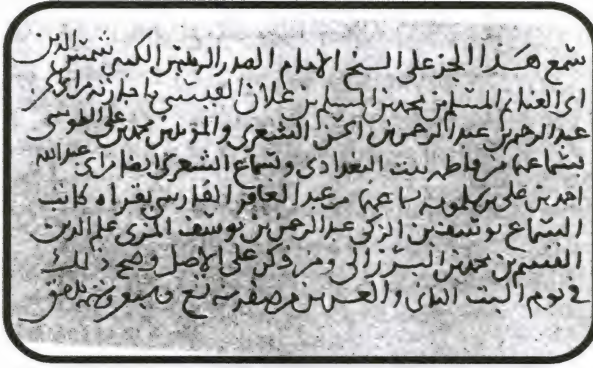 سمع هذا الجزء على الشيخ الإمام الصدر الرئيس الكبير شمس الدين
ابي الغنائم المسلم بن محمد بن المسلم بن علان القيسي باجازته من ابي بكر
عبد الرحيم بن عبد الرحمن بن الحسن الشعري والمؤيد بن محمد بن علي الطوسي
بسماعهما من فاطمة بنت البغدادي وبسماع الشعري ايضا من ابي عبد الله
احمد بن علي بن سماعهما من عبد الغافر الفارسي بقراءة كاتب
السماع يوسف بن الزكي عبد الرحمن بن يوسف المزي علم الدين
القسم بن محمد بن البرزالي ومن ذكر على الاصل وصح ذلك
في يوم السبت الثاني والعشرين من صفر سنة تسع وسبعين وستمائة بدمشق